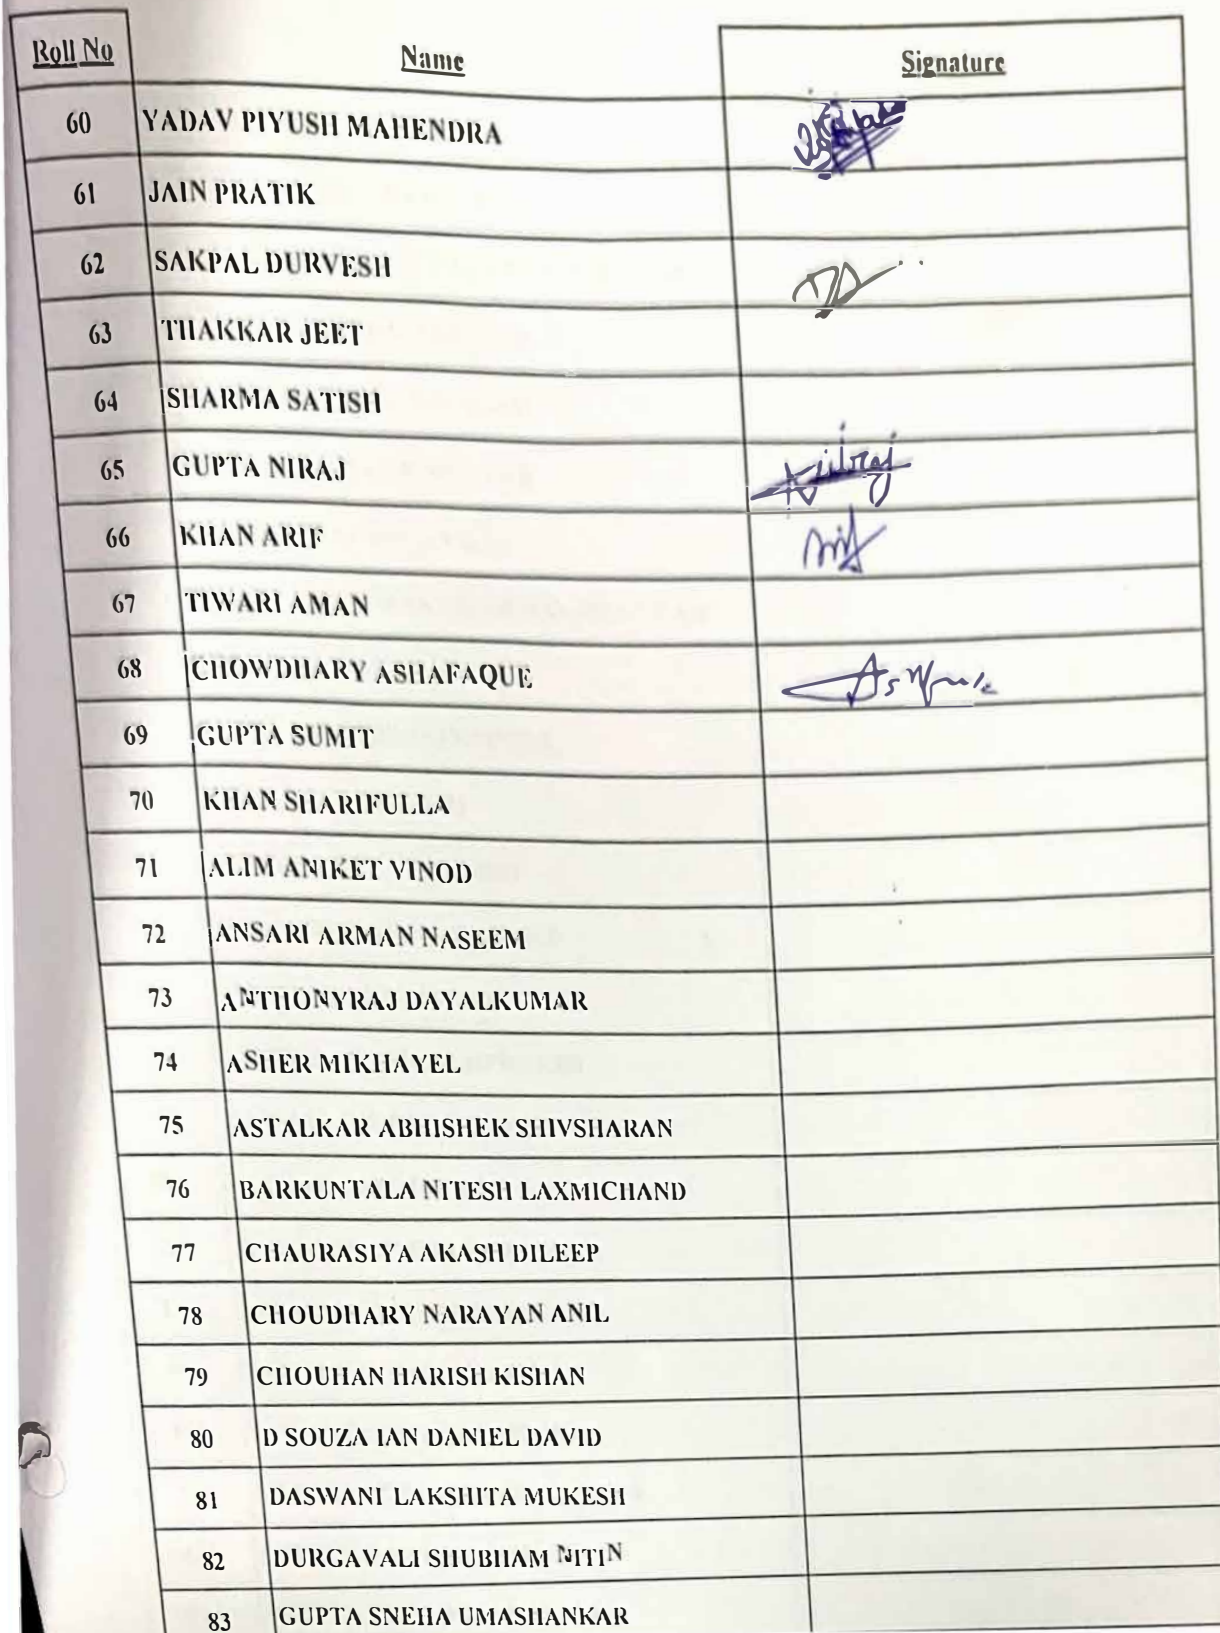 Roll No Name Signature
60 YADAV PIYUSH MAHENDRA
61 JAIN PRATIK
62 SAKPAL DURVESH
63 THAKKAR JEET
64 SHARMA SATISH
65 GUPTA NIRAJ Niraj
66 KHAN ARIF
67 TIWARI AMAN
68 CHOWDHARY ASHAFAQUE
69 GUPTA SUMIT
70 KHAN SHARIFULLA
71 ALIM ANIKET VINOD
72 ANSARI ARMAN NASEEM
73 ANTHONYRAJ DAYALKUMAR
74 ASHER MIKHAYEL
75 ASTALKAR ABHISHEK SHIVSHARAN
76 BARKUNTALA NITESH LAXMICHAND
77 CHAURASIYA AKASH DILEEP
78 CHOUDHARY NARAYAN ANIL
79 CHOUHAN HARISH KISHAN
80 D SOUZA IAN DANIEL DAVID
81 DASWANI LAKSHITA MUKESH
82 DURGAVALI SHUBHAM NITIN
83 GUPTA SNEHA UMASHANKAR